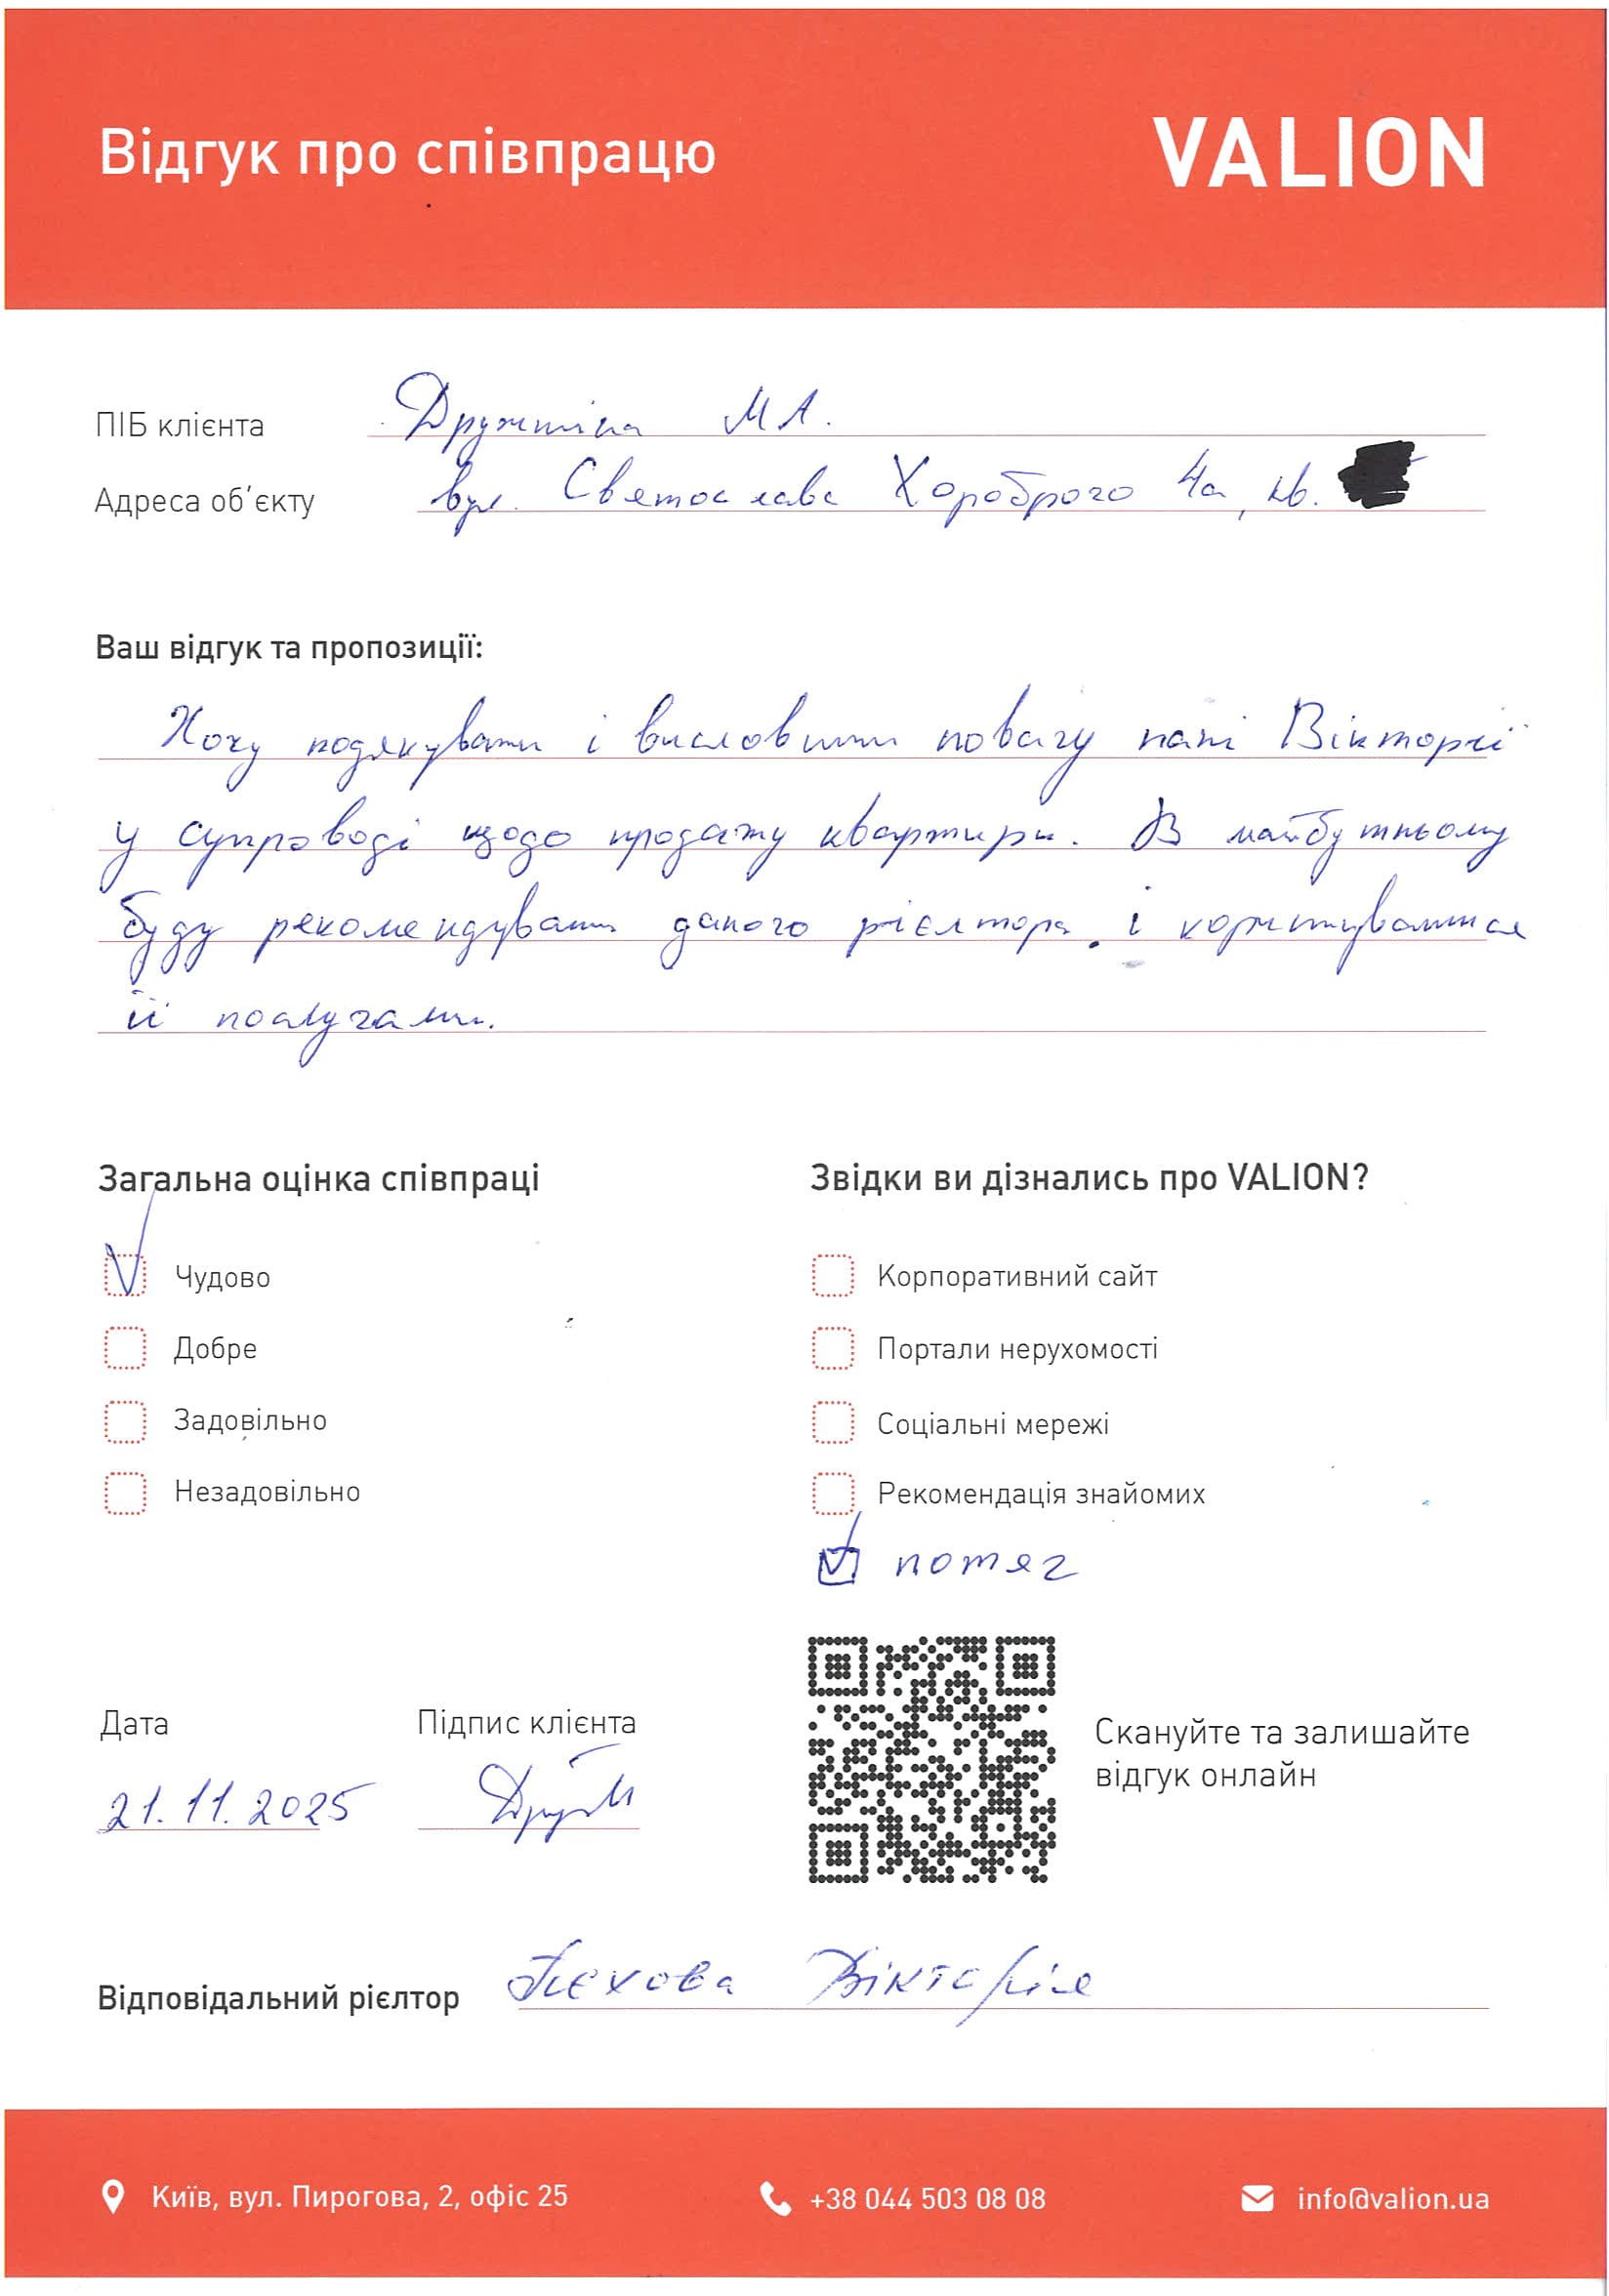 Відгук про співпрацю
VALION
ПІБ клієнта Дружиніна М А.
Адреса об'єкту вул. Святослава Хороброго 4а, кв.
Ваш відгук та пропозиції:
Хочу подякувати і висловити повагу пані Вікторії
у супроводі щодо продажу квартири. В майбутньому
буду рекомендувати даного рієлтора і користуватися
її послугами.
Загальна оцінка співпраці
Чудово
Добре
Задовільно
Незадовільно
Звідки ви дізнались про VALION?
Корпоративний сайт
Портали нерухомості
Соціальні мережі
Рекомендація знайомих
потяг
Дата
21.11.2025
Підпис клієнта
Скануйте та залишайте
відгук онлайн
Відповідальний рієлтор Вікторія
Київ, вул. Пирогова, 2, офіс 25
+38 044 503 08 08
info@valion.ua